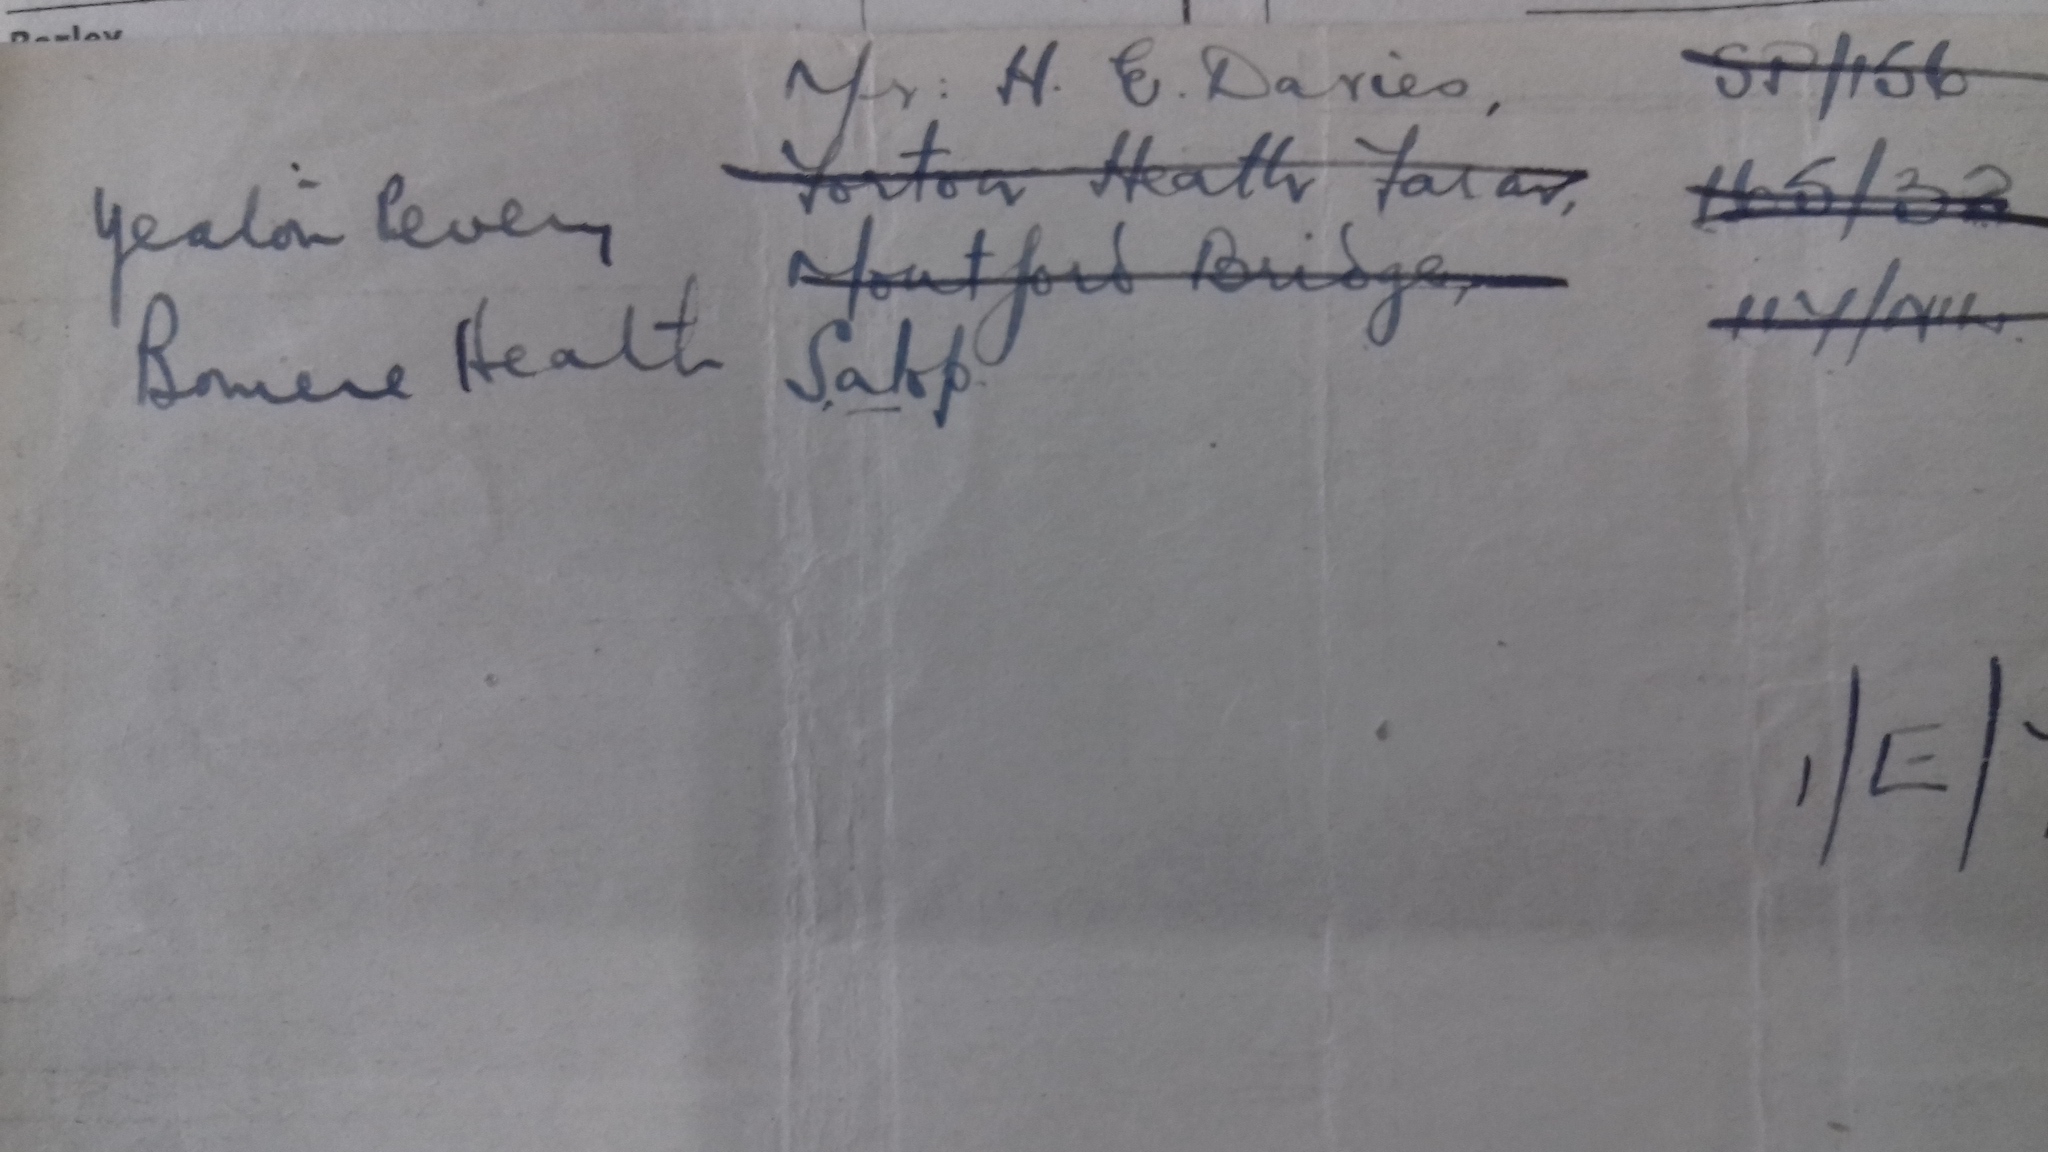 Barley
Mr: H. E. Davies,
Forton Heath Farm,
Montford Bridge,
Salop.
Yeaton Pevery
Bomere Heath
SP/156
165/32
114/NW.
1/E/